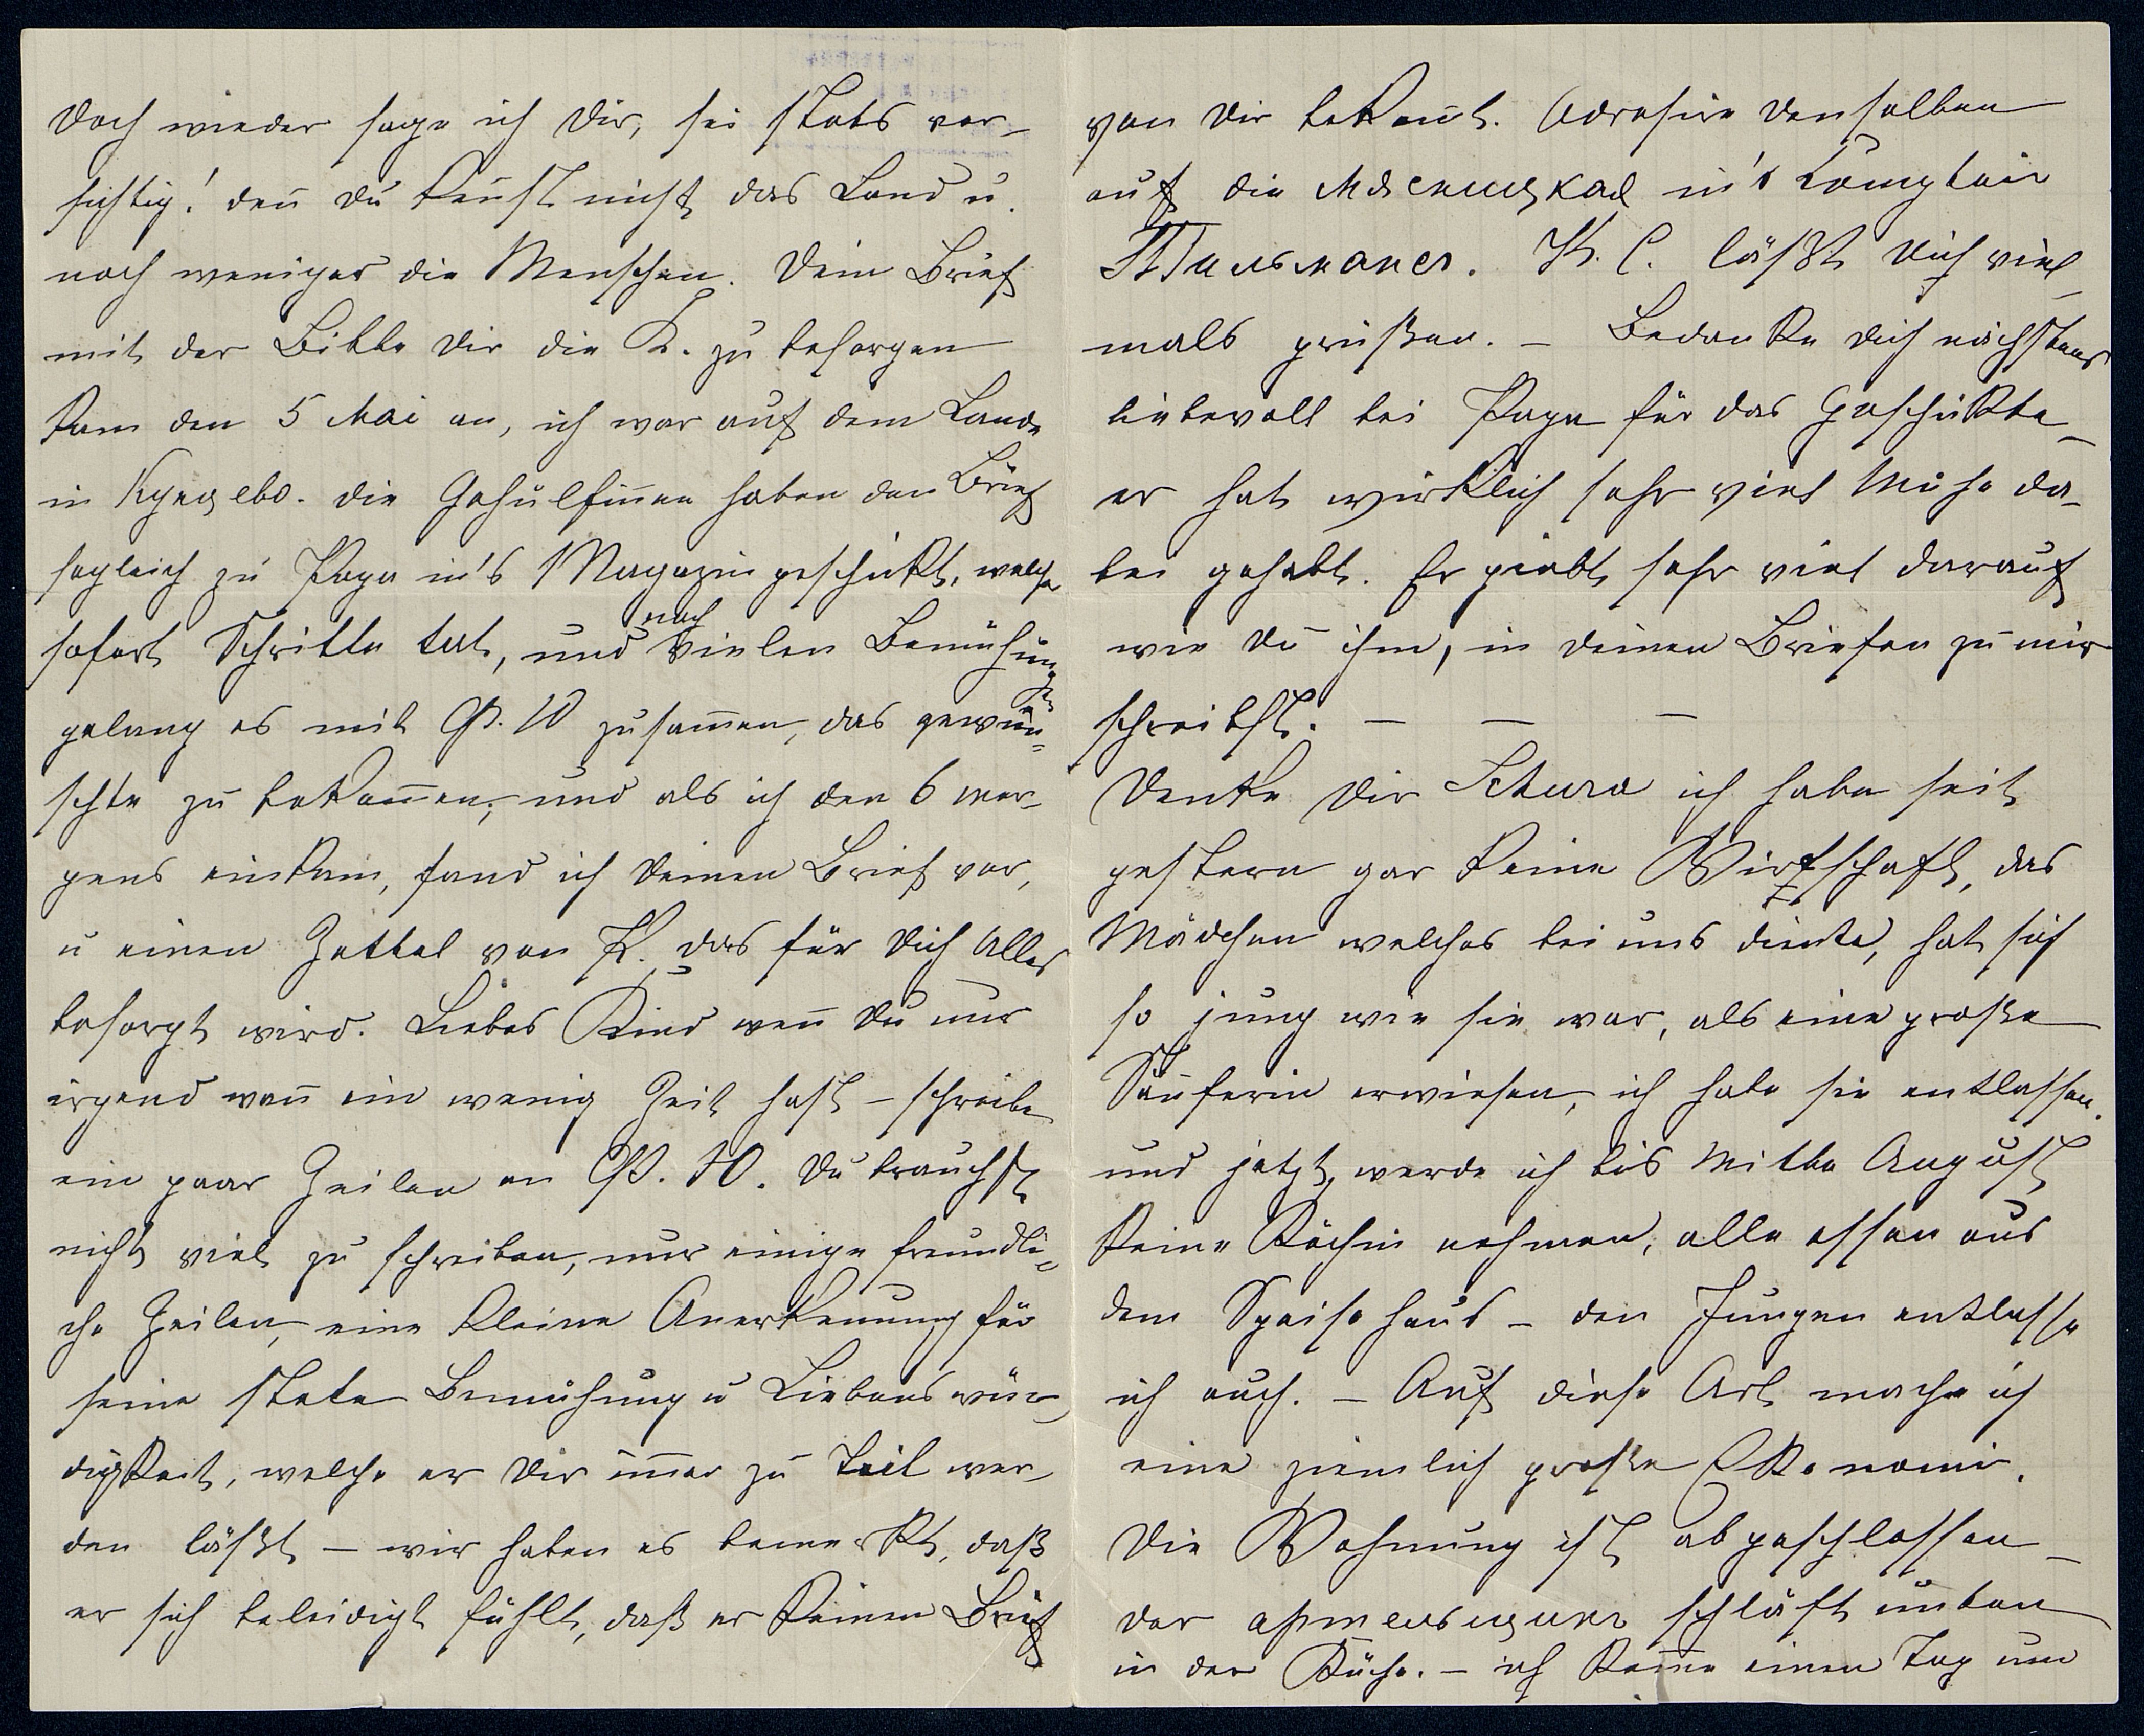 Doch wieder sage ich Dir, sei stets vor-
sichtig! den̄ Du ken̄st nicht das Land u.
noch weniger die Menschen. Dein Brief
mit der Bitte Dir die K. zu besorgen
kam den 5 Mai an, ich war auf dem Lande
in Кунцево. die Gehülfin̄en haben den Brief
sogleich zu Papa in's Magazin geschikt, welcher
sofort Schritte tat, und nach vielen Bemühungen
gelang es mit P. W zusam̄en, das gewün-
schte zu bekom̄en, und als ich den 6 mor-
gens einkam, fand ich Deinen Brief vor,
u einen Zettel von P. das für Dich Alles
besorgt wird. Liebes Kind wen̄ Du nur
irgend wan̄ ein wenig Zeit hast – schreibe
ein paar Zeilen an P. W. Du brauchst
nicht viel zu schreiben, nur einige freundli-
che Zeilen, eine kleine Anerkennung für
seine stete Bemühung u Liebenswür-
digkeit, welche er Dir im̄er zu Teil wer-
den läßt – wir haben es bemerkt, daß
er sich beleidigt fühlt, daß er keinen Brief
von Dir bekom̄t. Adresire denselben
auf die Мясницкая in's Comptoir
Тильманса. K. C. läßt Dich viel-
mals grüßen. – Bedanke Dich nächstens
liebevoll bei Papa für das Geschikte –
er hat wirklich sehr viel Mühe da-
bei gehabt. Er giebt sehr viel darauf
wie Du ihm, in Deinen Briefen zu mir
schreibst. – – –
Denke Dir Schura ich habe seit
gestern gar keine Wirtschaft, das
Mädchen welches bei uns diente, hat sich
so jung wie sie war, als eine große
Säuferin erwiesen, ich habe sie entlassen.
und jetzt, werde ich bis Mitte August
keine Köchin nehmen, alle essen aus
dem Speisehaus – den Jungen entlasse
ich auch. – Auf diese Art mache ich
eine ziemlich große Ökonomie.
Die Wohnung ist abgeschlossen –
der артельщикъ schläft unten
in der Küche. – ich kom̄e einen Tag um